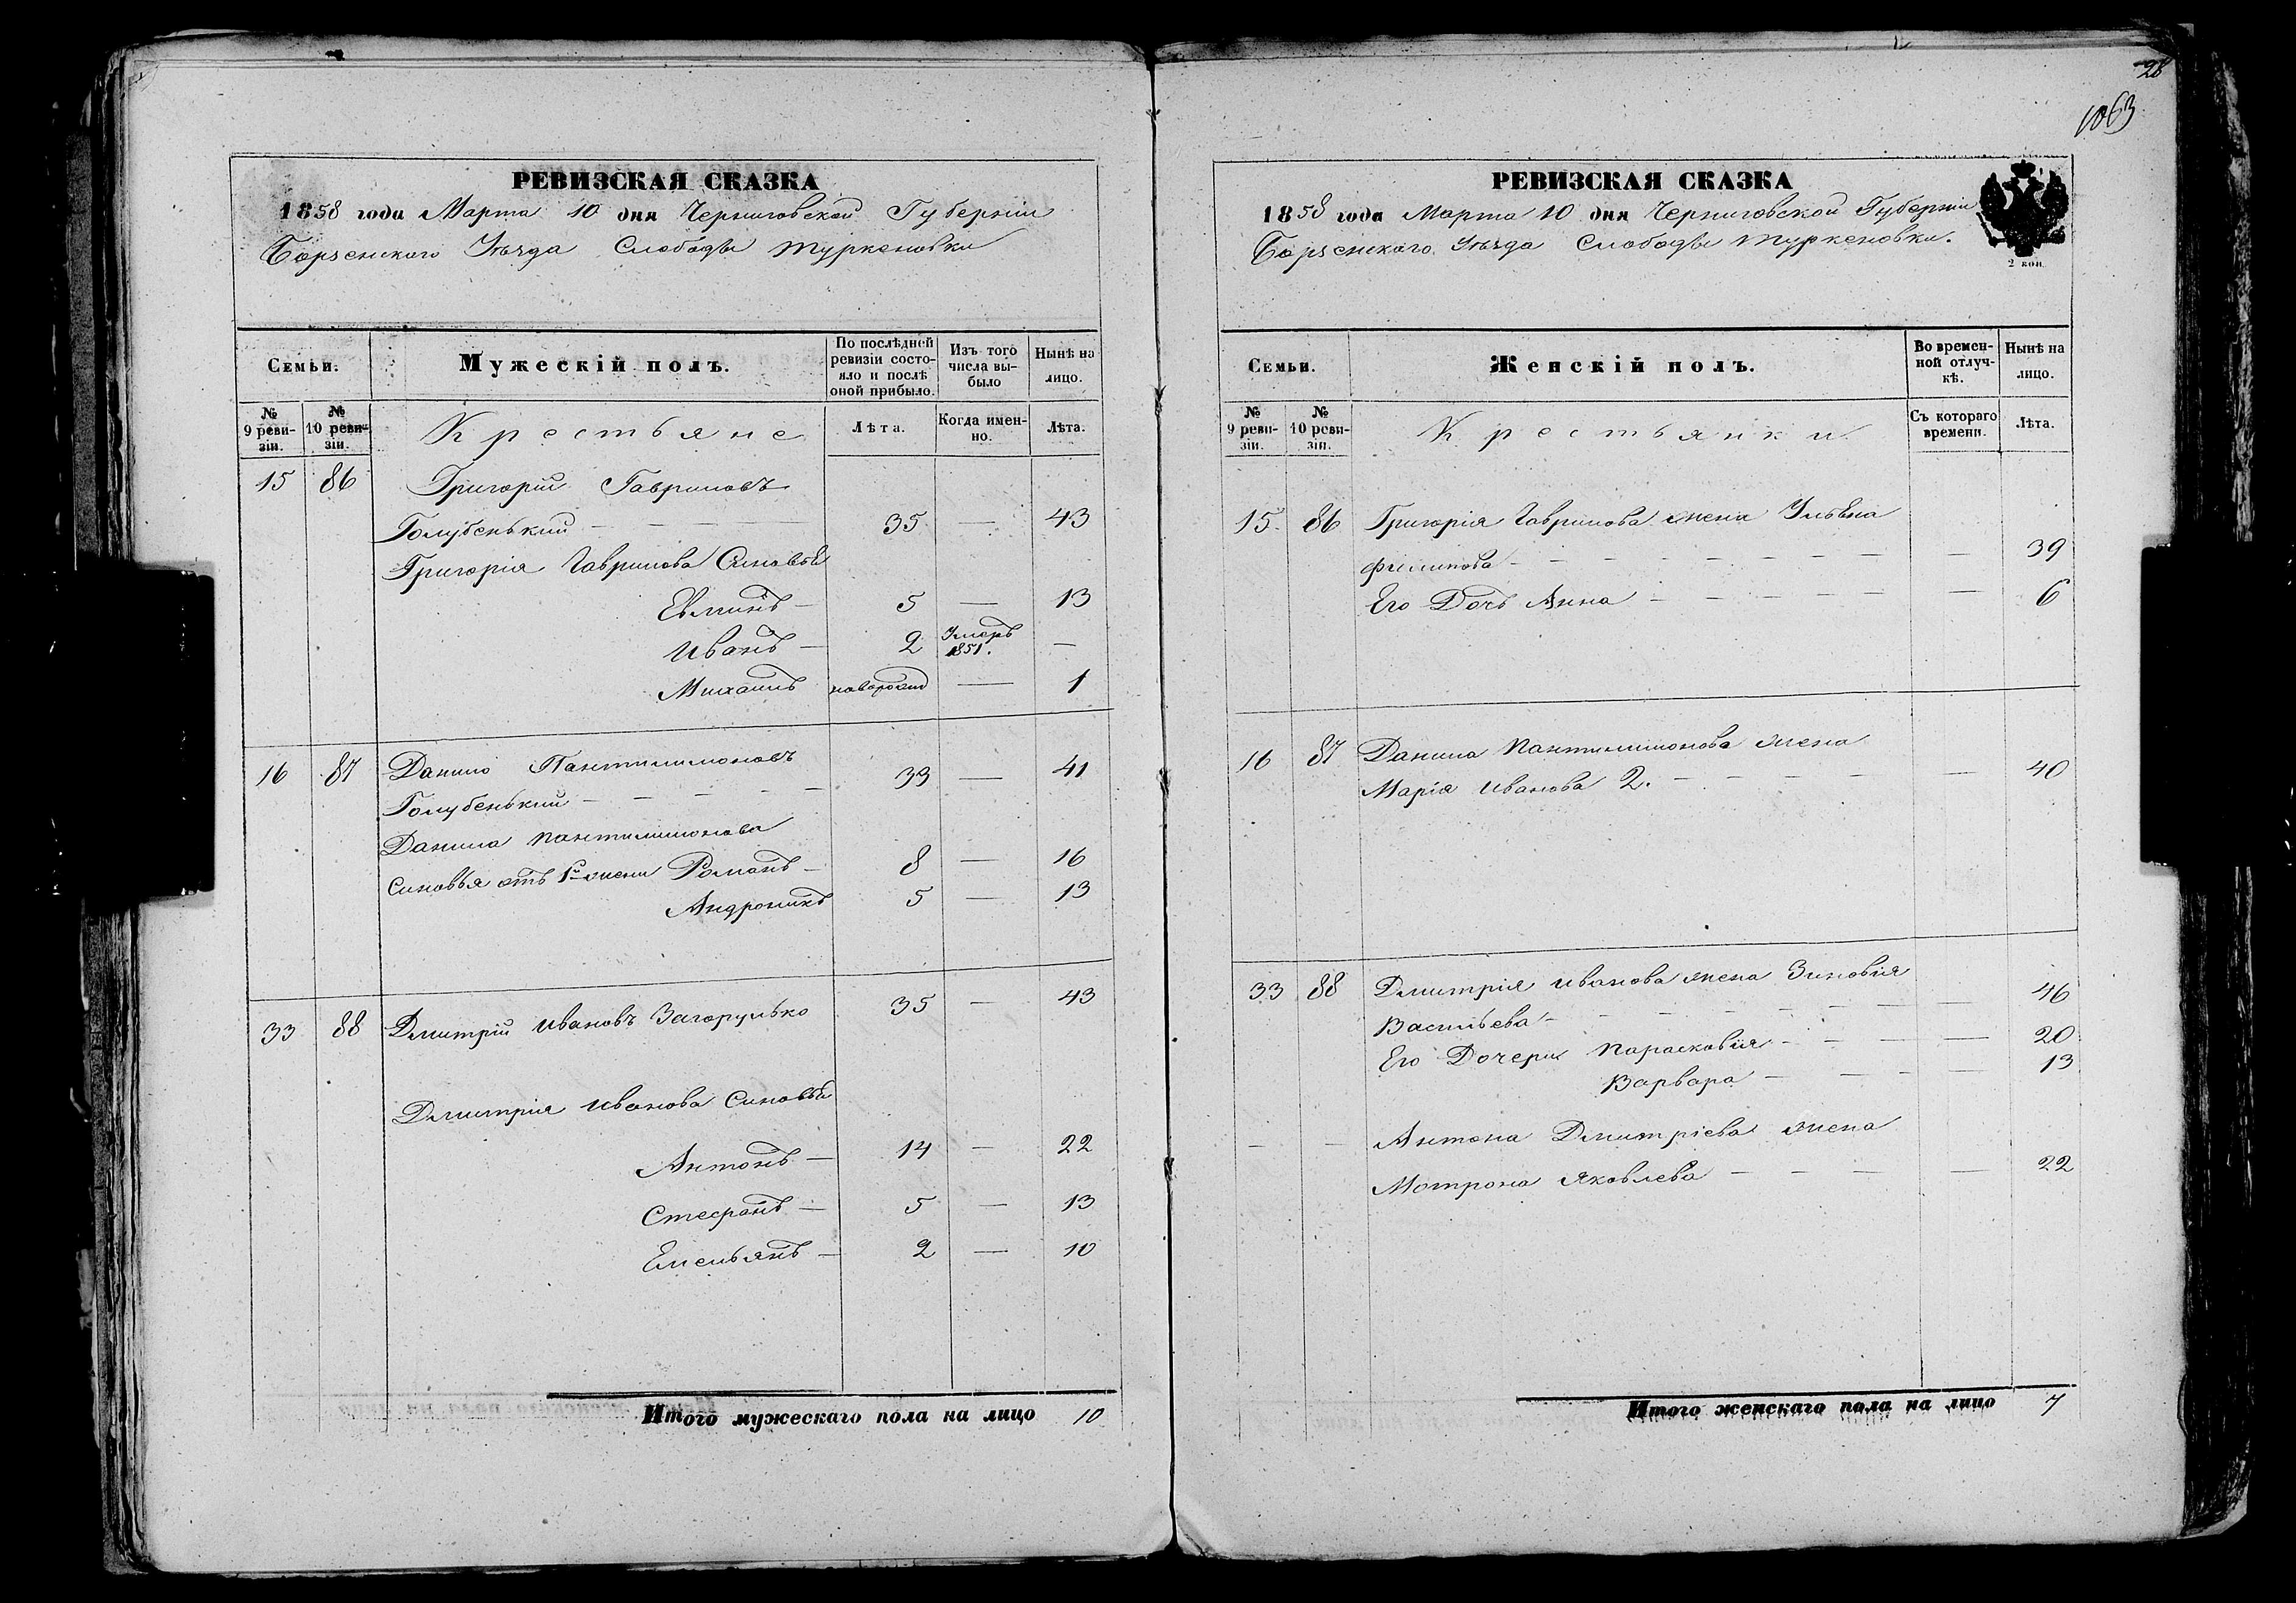 РЕВИЗСКАЯ СКАЗКА
1858 года Марта 10 дня Черниговской Губерніи
Борзенскаго Уѣзда Слободы Туркеновки
Семьи.
Мужескій полъ.
По послѣдней ревизіи состояло и послѣ оной прибыло.
Изъ того числа выбыло
Нынѣ на лицо.
№ 9 ревизіи.
№ 10 ревизіи.
Крестьяне
Лѣта.
Когда именно.
Лѣта.
15 86 Григорій Гавриловъ
Голубенькій — 35 — 43
Григорія Гаврилова Сыновья
Евминъ — 5 — 13
Иванъ — 2 Умеръ 1851. —
Михаилъ новорожд — 1
16 87 Данило Пантилимоновъ
Голубенькій — 33 — 41
Данила Пантилимонова
Сыновья отъ 1й жены Романъ — 8 — 16
Андроникъ 5 — 13
33 88 Дмитрій Ивановъ Загорулько 35 — 43
Дмитрія Иванова Сыновья
Антонъ — 14 — 22
Стефанъ — 5 — 13
Емельянъ — 2 — 10
Итого мужескаго пола на лицо 10
28
1063
РЕВИЗСКАЯ СКАЗКА
1858 года Марта 10 дня Черниговской Губерніи
Борзенскаго Уѣзда Слободы Туркеновки.
2 коп
Семьи.
Женскій полъ.
Во временной отлучкѣ.
Нынѣ на лицо.
№ 9 ревизіи.
№ 10 ревизіи.
Крестьянки
Съ котораго времени.
Лѣта.
15. 86 Григорія Гаврилова жена Ульяна
Филипова — — 39
Его Дочь Анна — — 6
16 87 Данила Пантилимонова жена
Марія Иванова 2. — — 40
33 88 Дмитрія Иванова жена Зиновія
Васильева — — 46
Его Дочери Парасковія — — 20
Варвара — — 13
— — Антона Дмитріева жена
Мотрона Яковлева — — 22
Итого женскаго пола на лицо 7